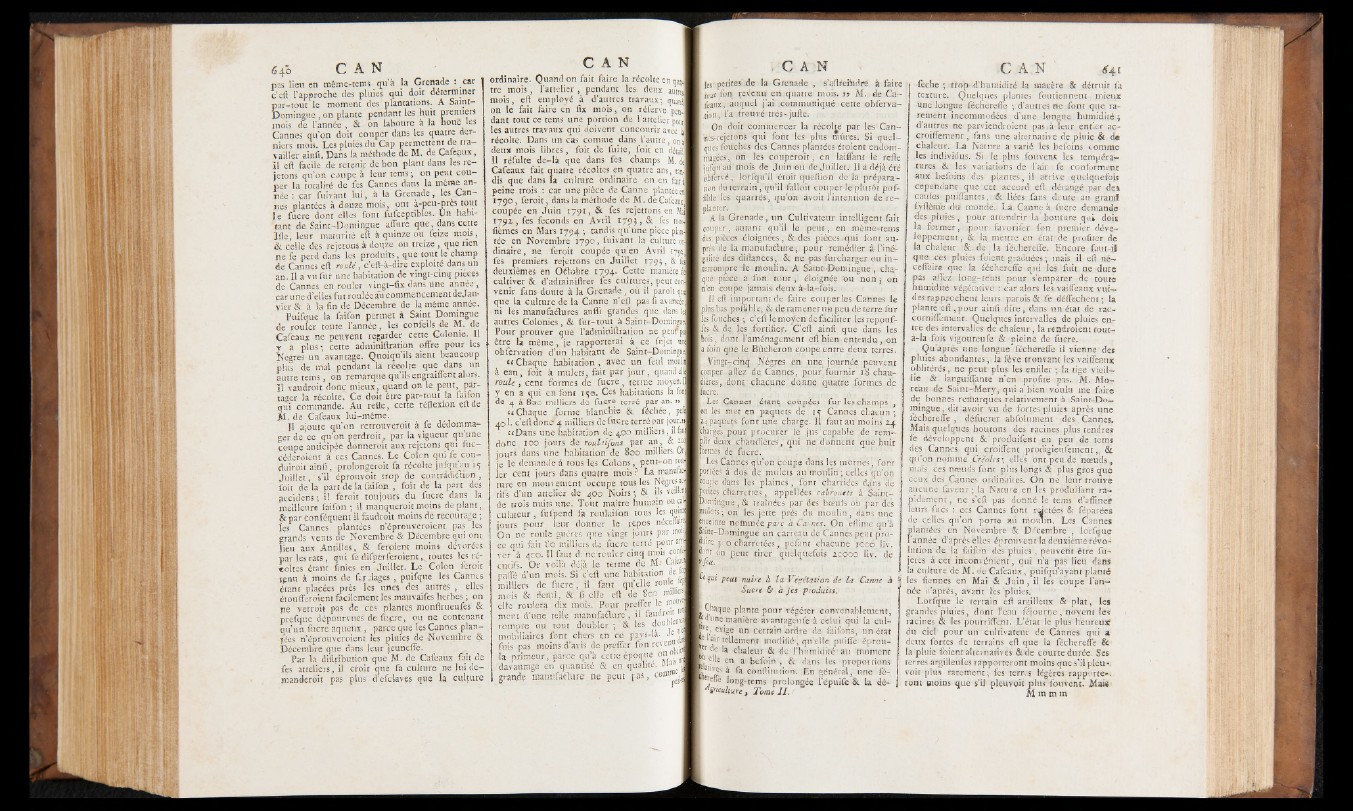 640 C A N
pas lieu en même-tems qu'à la Grenade : car
c'est l'approche des pluies qui doit déterminer
par-tout le moment des plantations. A Saint-
Domingue, on plante pendant les huit premiers
mois de l'année, & on laboure à la houe les
Cannes qu'on doit couper dans les quatre der-
niers mois. Les pluies du Cap permettent de tra-
vailler ainsi. Dans la méthode de M. de Cafeaux,
il est facile de retenir de bon plant dans les re-
jetons qu'on coupe à leur tems ; on peut cou-
per la totalité de ses Cannes dans la même an-
née : car suivant lui, à la Grenade, les Can-
nes plantées à douze mois, ont à-peu-près tout
le sucre dont elles sont susceptibles. Un habi-
tant de Saint-Domingue assure que, dans cette
Isle, leur maturité est à quinze ou seize mois,
& celle des rejetons à douze ou treize, que rien
ne se perd dans les produits, que tout le champ
de Cannes est roulé, c'est-à-dire exploité dans un
an. Il a vu sur une habitation de vingt-cinq pièces
de Cannes en rouler vingt-six dans une année,
car une d'elles fut roulée au commencement de Jan-
vier & à la fin de Décembre de la même année.
Puisque la saison permet à Saint Domingue
de rouler toute l'année, les conseils de M. de
Cafeaux ne peuvent regarder cette Colonie. Il
y a plus ; cette administration offre pour les
Negres un avantage. Quoiqu'ils aient beaucoup
plus de mal pendant la récolte que dans un
autre tems, on remarque qu'ils engraissent alors.
Il vaudroit donc mieux, quand on le peut, par-
tager la récolte. Ce doit être par-tout la saison
qui commande. Au reste, cette réflexion est de
M. de Cafeaux lui-même.
Il ajoute qu'on retrouveroit à se dédomma-
ger de ce qu'on perdroit, par la vigueur qu'une
coupe anticipée donneroit aux rejetons qui suc-
céderoient à ces Cannes. Le Colon qui se con-
duiroit ainsi, prolongeroit sa récolte jusqu'au 15
Juillet, s'il éprouvoit trop de contradiction,
soit de la part de la saison, soit de la part des
accidens ; il feroit toujours du sucre dans la
meilleure saison ; il manqueroit moins de plant,
& par conséquent il faudroit moins de recourage ;
les Cannes plantées n'éprouveroient pas les
grands vents de Novembre & Décembre qui ont
lieu aux Antilles, & seroient moins dévorées
par les rats, qui se disperseroient, toutes les ré-
coltes étant finies en Juillet. Le Colon seroit
tenu à moins de sarclages, puisque les Cannes
étant placées près les unes des autres, elles
étoufferoient facilement les mauvaises herbes ; on
ne verroit pas de ces plantes monstrueuses &
presque dépourvues de sucre, ou ne contenant
qu'un sucre aqueux, parce que les Cannes plan-
tées n'éprouveroient les pluies de Novembre &
Décembre que dans leur jeunesse.
Par la distribution que M. de Cafeaux fait de
ses atteliers, il croit que sa culture ne lui de-
manderoit pas plus d'esclaves que la culture
C A N
ordinaire. Quand on fait faire la récolte en qua-
tre mois, l'attelier, pendant les deux autres
mois, est employé à d'autres travaux ; quand
on le fait faire en six mois, on réserve pen-
dant tout ce tems une portion de l'attelier pour
les autres travaux qui doivent concourir avec la
récolte. Dans un cas comme dans l'autre, on a
deux mois libres, soit de suite, soit en détail.
Il résulte de-là que dans ses champs M. de
Cafeaux fait quatre récoltes en quatre ans, tan-
dis que dans la culture ordinaire on en fait à
peine trois : car une pièce de Canne plantée en
1790, seroit, dans la méthode de M. de Cafeaux,
coupée en Juin 1791, & ses rejettons en Mai
1792, ses seconds en Avril 1793, & ses troi-
siemes en Mars 1794 ; tandis qu'une pièce plan-
tée en Novembre 1790, suivant la culture or-
dinaire, ne seroit coupée qu'en Avril 1792,
ses premiers rejettons en Juillet 1793, & ses
deuxièmes en Octobre 1794. Cette manière de
cultiver & d'administrer ses cultures, peut con-
venir sans doute à la Grenade, où il paroît que
que la culture de la Canne n'est pas si avancée,
ni les manufactures aussi grandes que dans les
autres Colonies, & sur-tout à Saint-Domingue.
Pour prouver que l'administration ne peut pas
être la même, je rapporterai à ce sujet une
observation d'un habitant de Saint-Domingue.
« Chaque habitation, avec un seul moulin
à eau, soit à mulets, fait par jour, quand elle
roule, cent formes de sucre, terme moyen. Il
y en a qui en font 150. Ces habitations là font
de 4 à 800 milliers de sucre terré par an. »
« Chaque forme blanchie & séchée, pèse
40 l. c'est donc 4 milliers de sucre terré par jour. »
« Dans une habitation de 400 milliers, il faut
donc 100 jours de roulaisons par an, & 200
jours dans une habitation de 800 milliers. Or,
je le demande à tous les Colons, peut-on rou-
ler cent jours dans quatre mois ? La manufac-
ture en mouvement occupe tous les Nègres ac-
tifs d'un attelier de 400 Noirs ; & ils veillent
de trois nuits une. Tout maître humain ou cal-
culateur, suspend sa roulaison tous les quinze
jours pour leur donner le repos nécessaire.
On ne roule guères que vingt jours par mois
ce qui fait 80 milliers de sucre terré pour arri-
ver à 400. Il faut de ne rouler cinq mois consé-
cutifs. Or voilà déjà le terme de M. Cafeaux
passé d'un mois. Si c'est une habitation de 600
milliers de sucre, il faut qu'elle roule sept
mois & demi, & si elle est de 800 milliers
elle roulera dix mois. Pour presser le mouve-
ment d'une telle manufacture, il faudroit in-
rompre ou tout doubler ; & les doubles
mobiliaires sont chers en ce pays-là. Je ne
suis pas moins d'avis de presser son revenu dans
la primeur, parce qu'à cette époque on obtient
davantage en quantité & en qualité. Mais une
grande manufacture ne peut pas, comme
C A N
les petites de la Grenade, s'astreindre à faire
tout son revenu en quatre mois. » M. de Ca-
feaux, auquel j'ai communiqué cette observa-
tion, l'a trouvé très-juste.
On doit commencer la récolte par les Can-
nes-rejetons qui sont les plus mûres. Si quel-
ques souches des Cannes plantées étoient endom-
magées, on les couperoit, en laissant le reste
jusqu'au mois de Juin ou de Juillet. Il a déjà été
observé, lorsqu'il étoit question de la prépara-
tion du terrain, qu'il falloit couper le plutôt pos-
sible les quarrés, qu'on avoit l'intention de re-
planter.
A la Grenade, un Cultivateur intelligent fait
couper, autant qu'il le peut, en même-tems
des pièces éloignées, & des pièces qui sont au-
près de la manufacture, pour remédier à l'iné-
galité des distances, & ne pas surcharger ou in-
terrompre le moulin. A Saint-Domingue, cha-
que pièce a son tour, éloignée ou non ; on
n'en coupe jamais deux à-la-fois.
Il est important de faire couper les Cannes le
plus bas possible, & de ramener un peu de terre sur
les souches ; c'est le moyen de faciliter les repouss-
ses & de les fortifier. C'est ainsi que dans les
bois, dont l'aménagement est bien entendu, on
a soin que le Bûcheron coupe entre deux terres.
Vingt-cinq Nègres en une journée peuvent
couper assez de Cannes, pour fournir 18 chau-
dières, dont chacune donne quatre formes de
sucre.
Les Cannes étant coupées sur les champs,
on les met en paquets de 15 Cannes chacun ;
24 paquets font une charge. Il faut au moins 24
charges pour procurer le jus capable de rem-
plir deux chaudières, qui ne donnent que huit
formes de sucre.
Les Cannes qu'on coupe dans les mornes, sont
portées à dos de mulets au moulin ; celles qu'on
coupe dans les plaines, sont charriées dans de
petites charrettes, appellées cabrouets à Saint-
Domingue, & traînées par des bœufs ou par des
mulets ; on les jette près du moulin, dans une
enceinte nommée parc à Cannes. On estime qu'à
Saint-Domingue un carreau de Cannes peut pro-
duire 300 charretées, pesant chacune 1000 liv.
dont on peut tirer quelquefois 20000 liv. de
vesou.
Ce qui peut nuire à la Végétation de la Canne à
Sucre & à ses produits.
Chaque plante pour végéter convenablement,
& d'une manière avantageuse à celui qui la cul-
tive, exige un certain ordre de saisons, un état
de l'air tellement modifié, qu'elle puisse éprou-
ver de la chaleur & de l'humidité au moment
où elle en a besoin, & dans les proportions
relatives à sa constitution. En général, une sé-
cheresse long-tems prolongée l'épuise & la dé-
Agriculture, Tome II.
C A N 641
sèche ; trop d'humidité la macère & détruit sa
texture. Quelques plantes soutiennent mieux
une longue sécheresse ; d'autres ne sont que ra-
rement incommodées d'une longue humidité ;
d'autres ne parviendroient pas à leur entier ac-
croissement, sans une alternative de pluie & de
chaleur. La Nature a varié les besoins comme
les individus. Si le plus souvent les tempéra-
tures & les variations de l'air se conforment
aux besoins des plantes, il arrive quelquefois
cependant que cet accord est dérangé par des
causes puissantes, & liées sans doute au grand
systême du monde. La Canne à sucre demande
des pluies, pour attendrir la bouture qui doit
la former, pour favoriser son premier déve-
loppement, & la mettre en état de profiter de
la chaleur & de la sécheresse. Encore faut-il
que ces pluies soient graduées ; mais il est né-
cessaire que la sécheresse qui les suit ne dure
pas assez long-tems pour s'emparer de toute
humidité végétative : car alors les vaisseaux vui-
des rapprochent leurs parois & se dessechent ; la
plante est, pour ainsi dire, dans un état de rac-
cornissement. Quelques intervalles de pluies en-
tre des intervalles de chaleur, la rendroient tout-
à-la fois vigoureuse & pleine de sucre.
Qu'après une longue sécheresse il vienne des
pluies abondantes, la sève trouvant les vaisseaux
oblitérés, ne peut plus les enfiler ; la tige vieil-
lie & languissante n'en profite pas. M. Mo-
reau de Saint-Mery, qui a bien voulu me faire
de bonnes remarques relativement à Saint-Do-
mingue, dit avoir vu de fortes pluies après une
sécheresse, désucrer absolument des Cannes.
Mais quelques boutons des racines plus tendres
se développent & produisent en peu de tems
des Cannes qui croissent prodigieusement, &
qu'on nomme Créoles ; elles ont peu de nœuds,
mais ces nœuds sont plus longs & plus gros que
ceux des Cannes ordinaires. On ne leur trouve
aucune saveur ; la Nature en les produisant ra-
pidement, ne s'est pas donné le tems d'affiner
leurs sucs : ces Cannes sont rejettées & séparées
de celles qu'on porte au moulin. Les Cannes
plantées en Novembre & Décembre, lorsque
l'année d'après elles éprouvent la deuxième révo-
lution de la saison des pluies, peuvent être su-
jettes à cet inconvénient, qui n'a pas lieu dans
la culture de M. de Cafeaux, puisqu'ayant planté
les siennes en Mai & Juin, il les coupe l'an-
née d'après, avant les pluies.
Lorsque le terrain est argilleux & plat, les
grandes pluies, dont l'eau séjourne, noyent les
racines & les pourrissent. L'état le plus heureux
du ciel pour un cultivateur de Cannes qui a
deux sortes de terrains est que la sécheresse &
la pluie soient alternatives & de courte durée. Ses
terres argilleuses rapporteront moins que s'il pleu-
voit plus rarement, ses terres légères rapporte-
ront moins que s'il pleuvoit plus souvent. Mais
M m m m